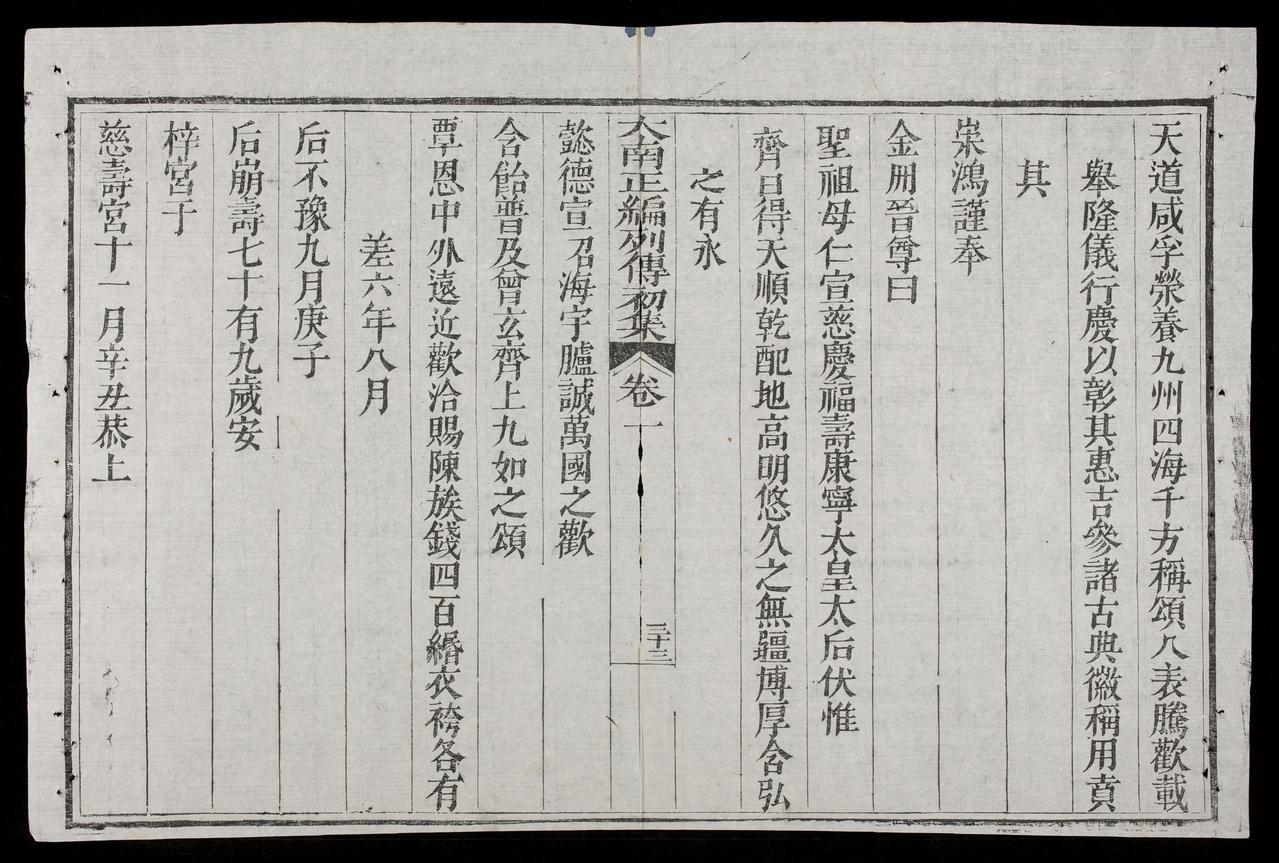 天道咸孚榮養九州四海千方稱頌八表騰歡載
舉隆儀行慶以彰其惠吉參諸古典徽稱用賁
其
崇鴻謹奉
金冊晉尊曰
聖祖母仁宣慈慶福壽康寧太皇太后伏惟
齊日得天順乾配地高明悠久之無疆博厚含弘
之有永
大南正編列傳初集 卷一 三十三
懿德宣昭海宇臚誠萬國之歡
含飴普及曾玄齊上九如之頌
覃恩中外遠近歡洽賜陳族錢四百緡衣袴各有
差六年八月
后不豫九月庚子
后崩壽七十有九歲安
梓宮于
慈壽宮十一月辛丑恭上